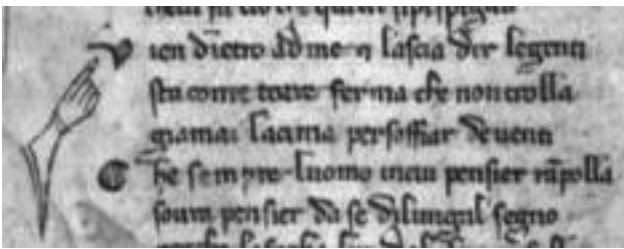 V ien dietro ad me ⁊ lascia dir le genti
sta come torre ferma che non crolla
giamai lacima per soffiar de uenti
C he sempre luomo incui pensier rāpolla
soura pensier da se dilungal segno